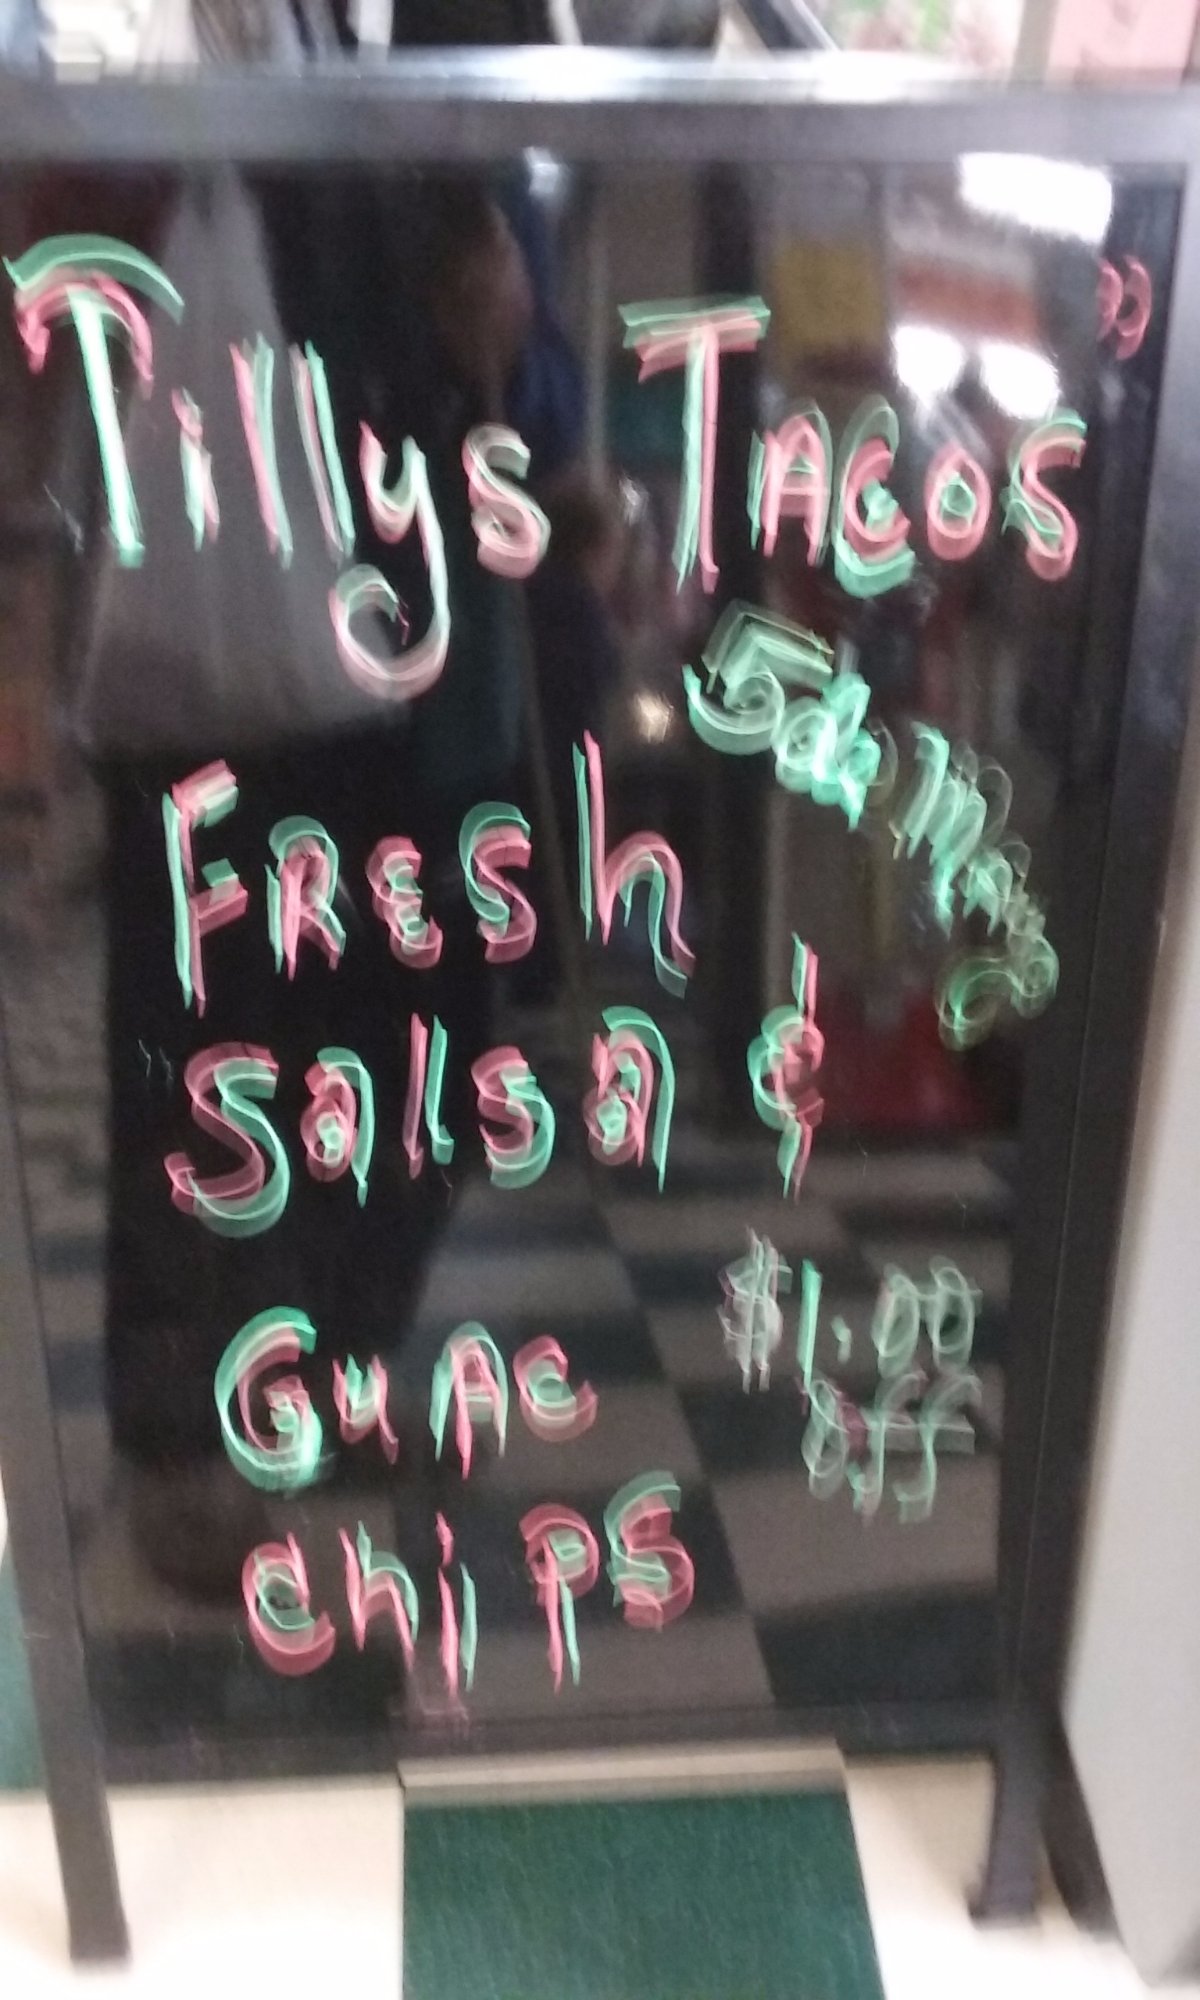 Tillys TACOS
FREsh
Salsa &
$1.00
Off
GuAc
chips